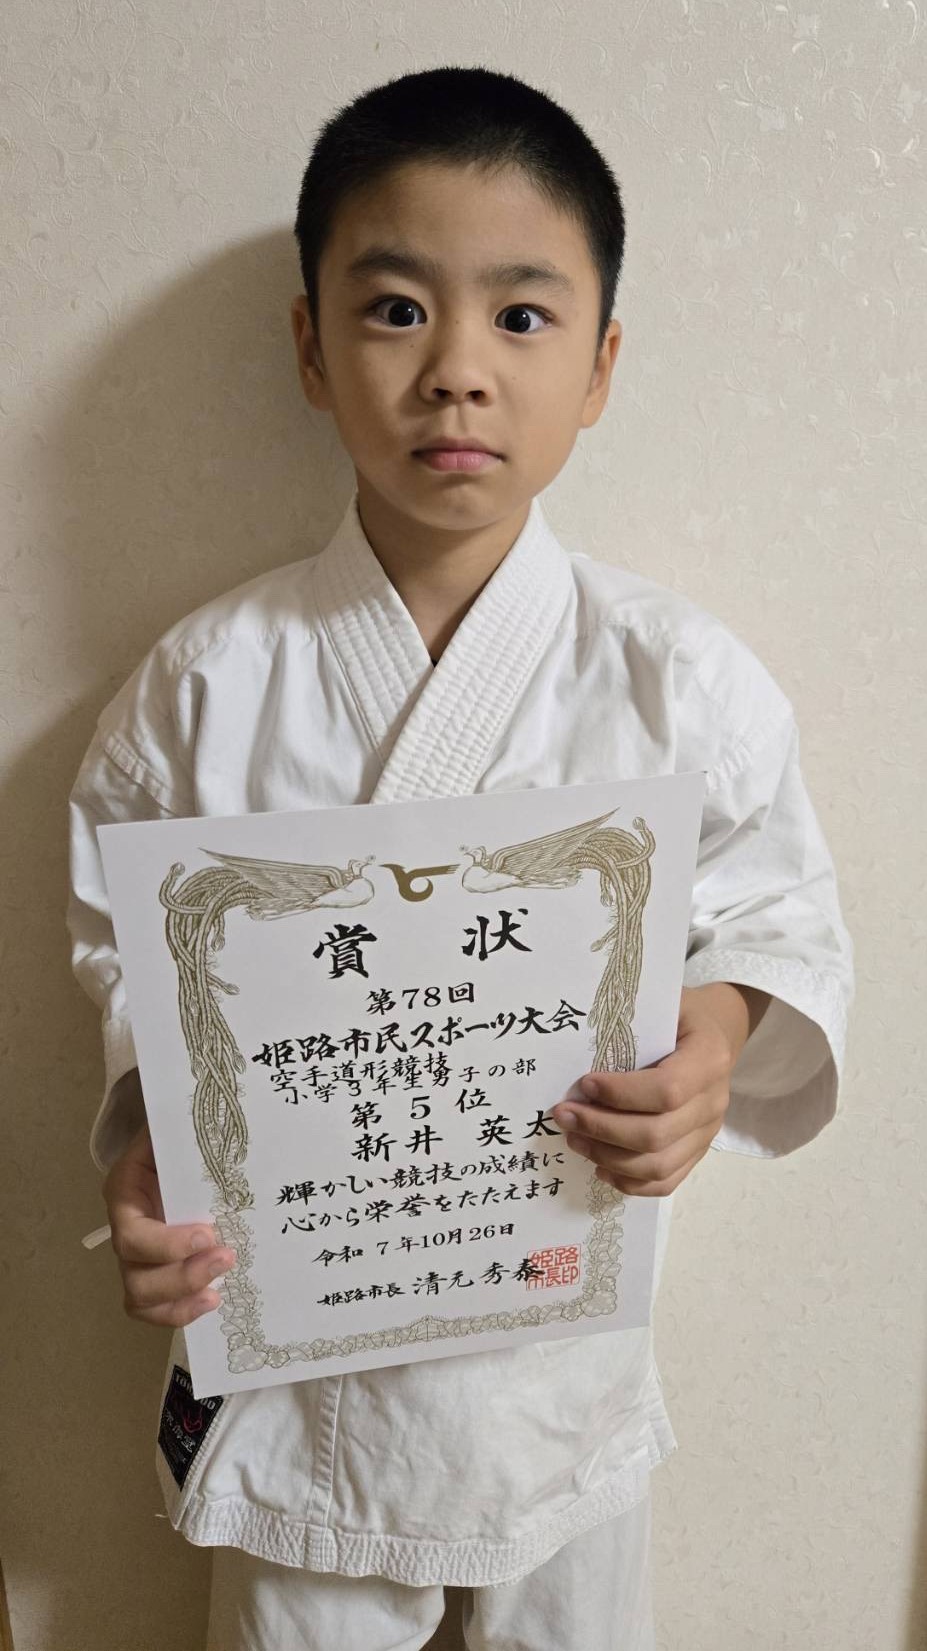 賞状
第78回
姫路市民スポーツ大会
空手道形競技
小学3年生男子の部
第5位
新井 英太
輝かしい競技の成績に
心から栄誉をたたえます
令和7年10月26日
姫路市長 清元秀泰
姫路
市長印